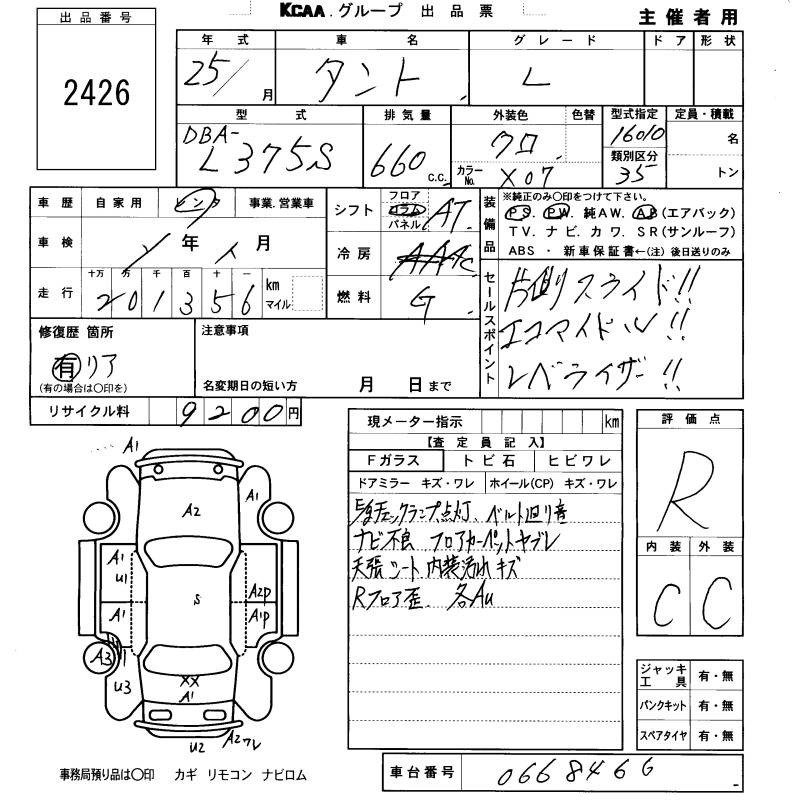 KCAA.グループ 出品票
主催者用
出品番号
2426
年式 車名 グレード ドア 形状
25/ 月 タント L
型式 排気量 外装色 色替 型式指定 定員・積載
DBA-
L375S 660 c.c. クロ カラーNo. X07 16010 名
類別区分
35 トン
車歴 自家用 レンタ 事業.営業車
車検 年 月
走行 十万 万 千 百 十 一 km マイル
201356
シフト フロア コラム パネル AT
冷房 AAC
燃料 G
装備品
※純正のみ〇印をつけて下さい。
PS. PW. 純AW. AB(エアバック)
TV. ナビ. カワ. SR(サンルーフ)
ABS ・ 新車保証書←(注)後日送りのみ
セールスポイント
片側スライド!!
エコアイドル!!
レベライザー!!
修復歴 箇所
有 リア
(有の場合は〇印を)
注意事項
名変期日の短い方 月 日まで
リサイクル料 9200円
現メーター指示 km
【査定員記入】
Fガラス トビ石 ヒビワレ
ドアミラー キズ・ワレ ホイール(CP) キズ・ワレ
チェックランプ点灯 ベルト廻り音
ナビ不良 フロアカーペットヤブレ
天張シート内装汚れキズ
Rフロア歪 各AU
評価点
R
内装 外装
C C
ジャッキ工具 有・無
パンクキット 有・無
スペアタイヤ 有・無
A1
A2 A1
A1
U1
S A2P
A1 A1P
A3
U3 XX
A1
U2 A2ワレ
事務局預り品は〇印 カギ リモコン ナビロム
車台番号 0668466